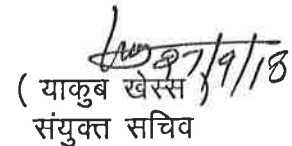 27/9/18
( याकुब खेस्स )
संयुक्त सचिव